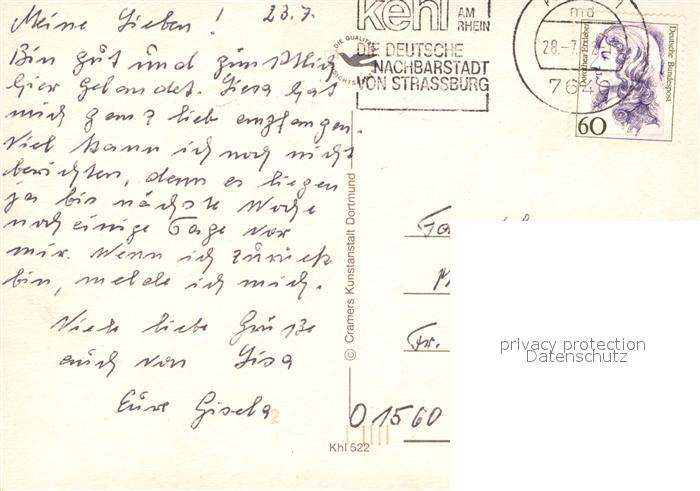 Meine Lieben! 23.7.
Bin gut und pünktlich
hier gelandet. Lisa hat
mich ganz lieb empfangen.
Viel kann ich noch nicht
berichten, denn es liegen
ja bis nächste Woche
noch einige Tage vor
mir. Wenn ich zurück
bin, melde ich mich.
Viele liebe Grüße
auch von Lisa
Eure Gisela
kehl AM
RHEIN
DIE DEUTSCHE
NACHBARSTADT
VON STRASSBURG
28.-7.
764
Deutsche Bundespost
60
© Cramers Kunstanstalt Dortmund
Fr.
O 1560
Khl 522
privacy protection
Datenschutz